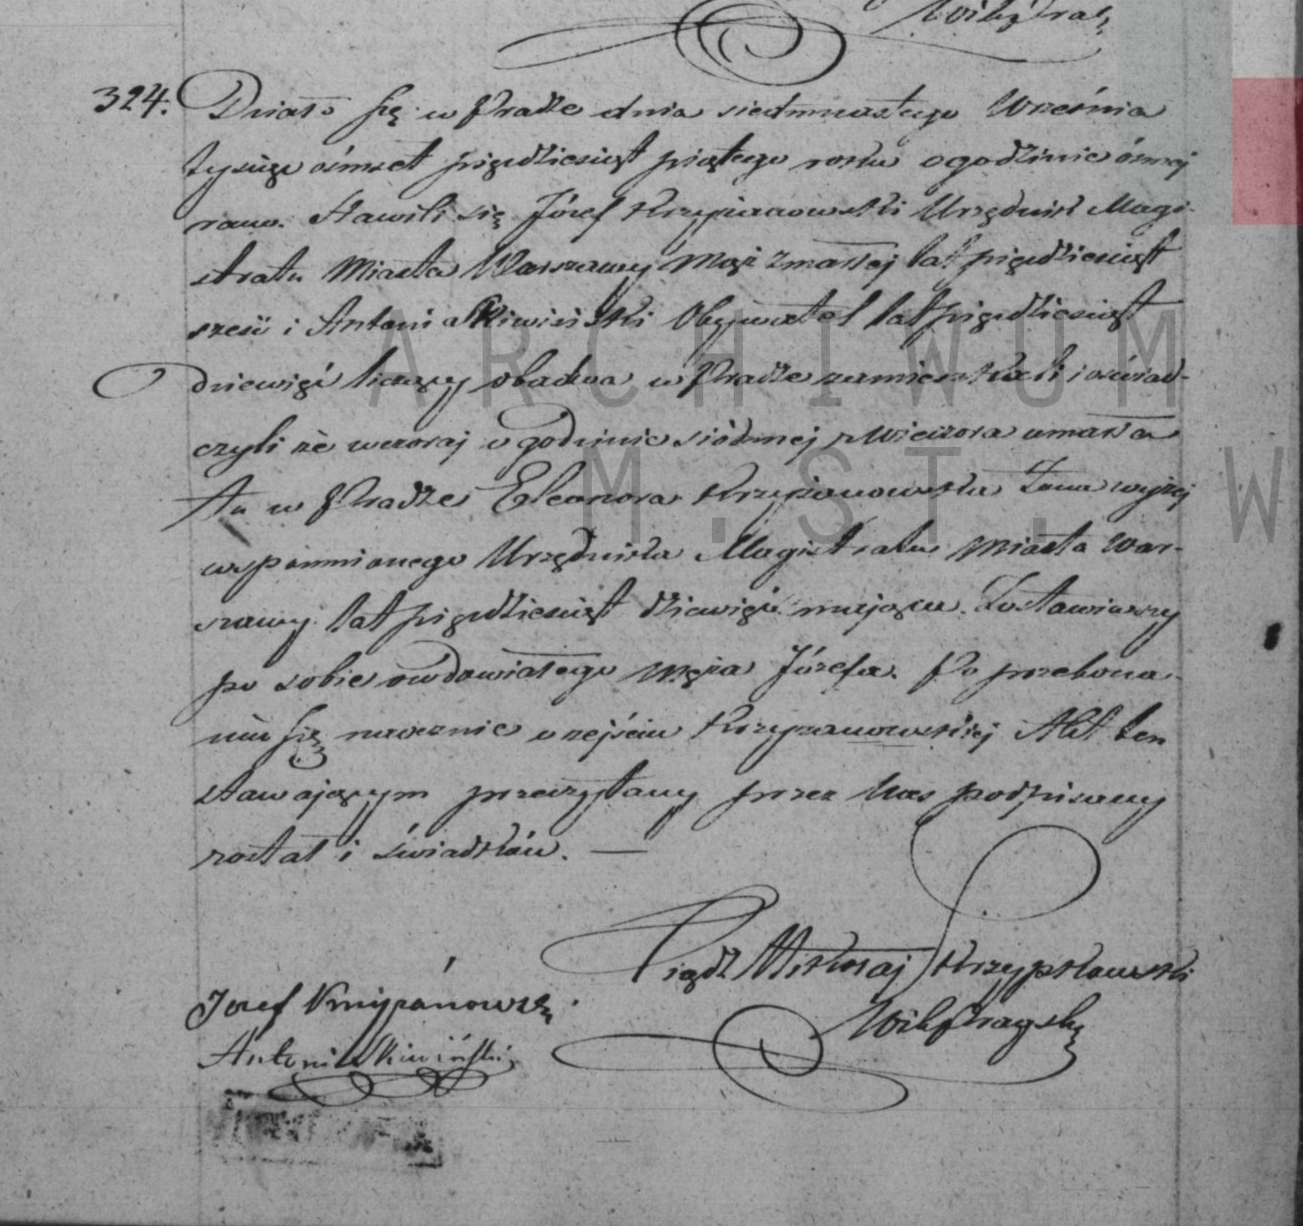 324.
Działo się w Pradze dnia siedmnastego Września
tysiąc ośmset pięćdziesiąt piątego roku o godzinie ósmej
rano. Stawili się Józef Krzyżanowski Urzędnik Magi-
stratu Miasta Warszawy Mąż Zmarłej lat pięćdziesiąt
sześć i Antoni Obywatel lat pięćdziesiąt
dziewięć liczący obadwa w Pradze zamieszkali i oświad-
czyli że wczoraj o godzinie siódmej z wieczora umarła
tu w Pradze Eleonora Krzyżanowska Żona wyżej
wspomnionego Urzędnika Magistratu Miasta War-
szawy lat pięćdziesiąt dziewięć mająca. Zostawiwszy
po sobie owdowiałego Męża Józefa. Po przekona-
niu się naocznie o zejściu Krzyżanowskiej Akt ten
stawającym przeczytany przez Nas podpisany
został i świadków. —
Xiądz Mikołaj
Józef Krzyżanowski
Antoni
ARCHIWUM
M. ST. W